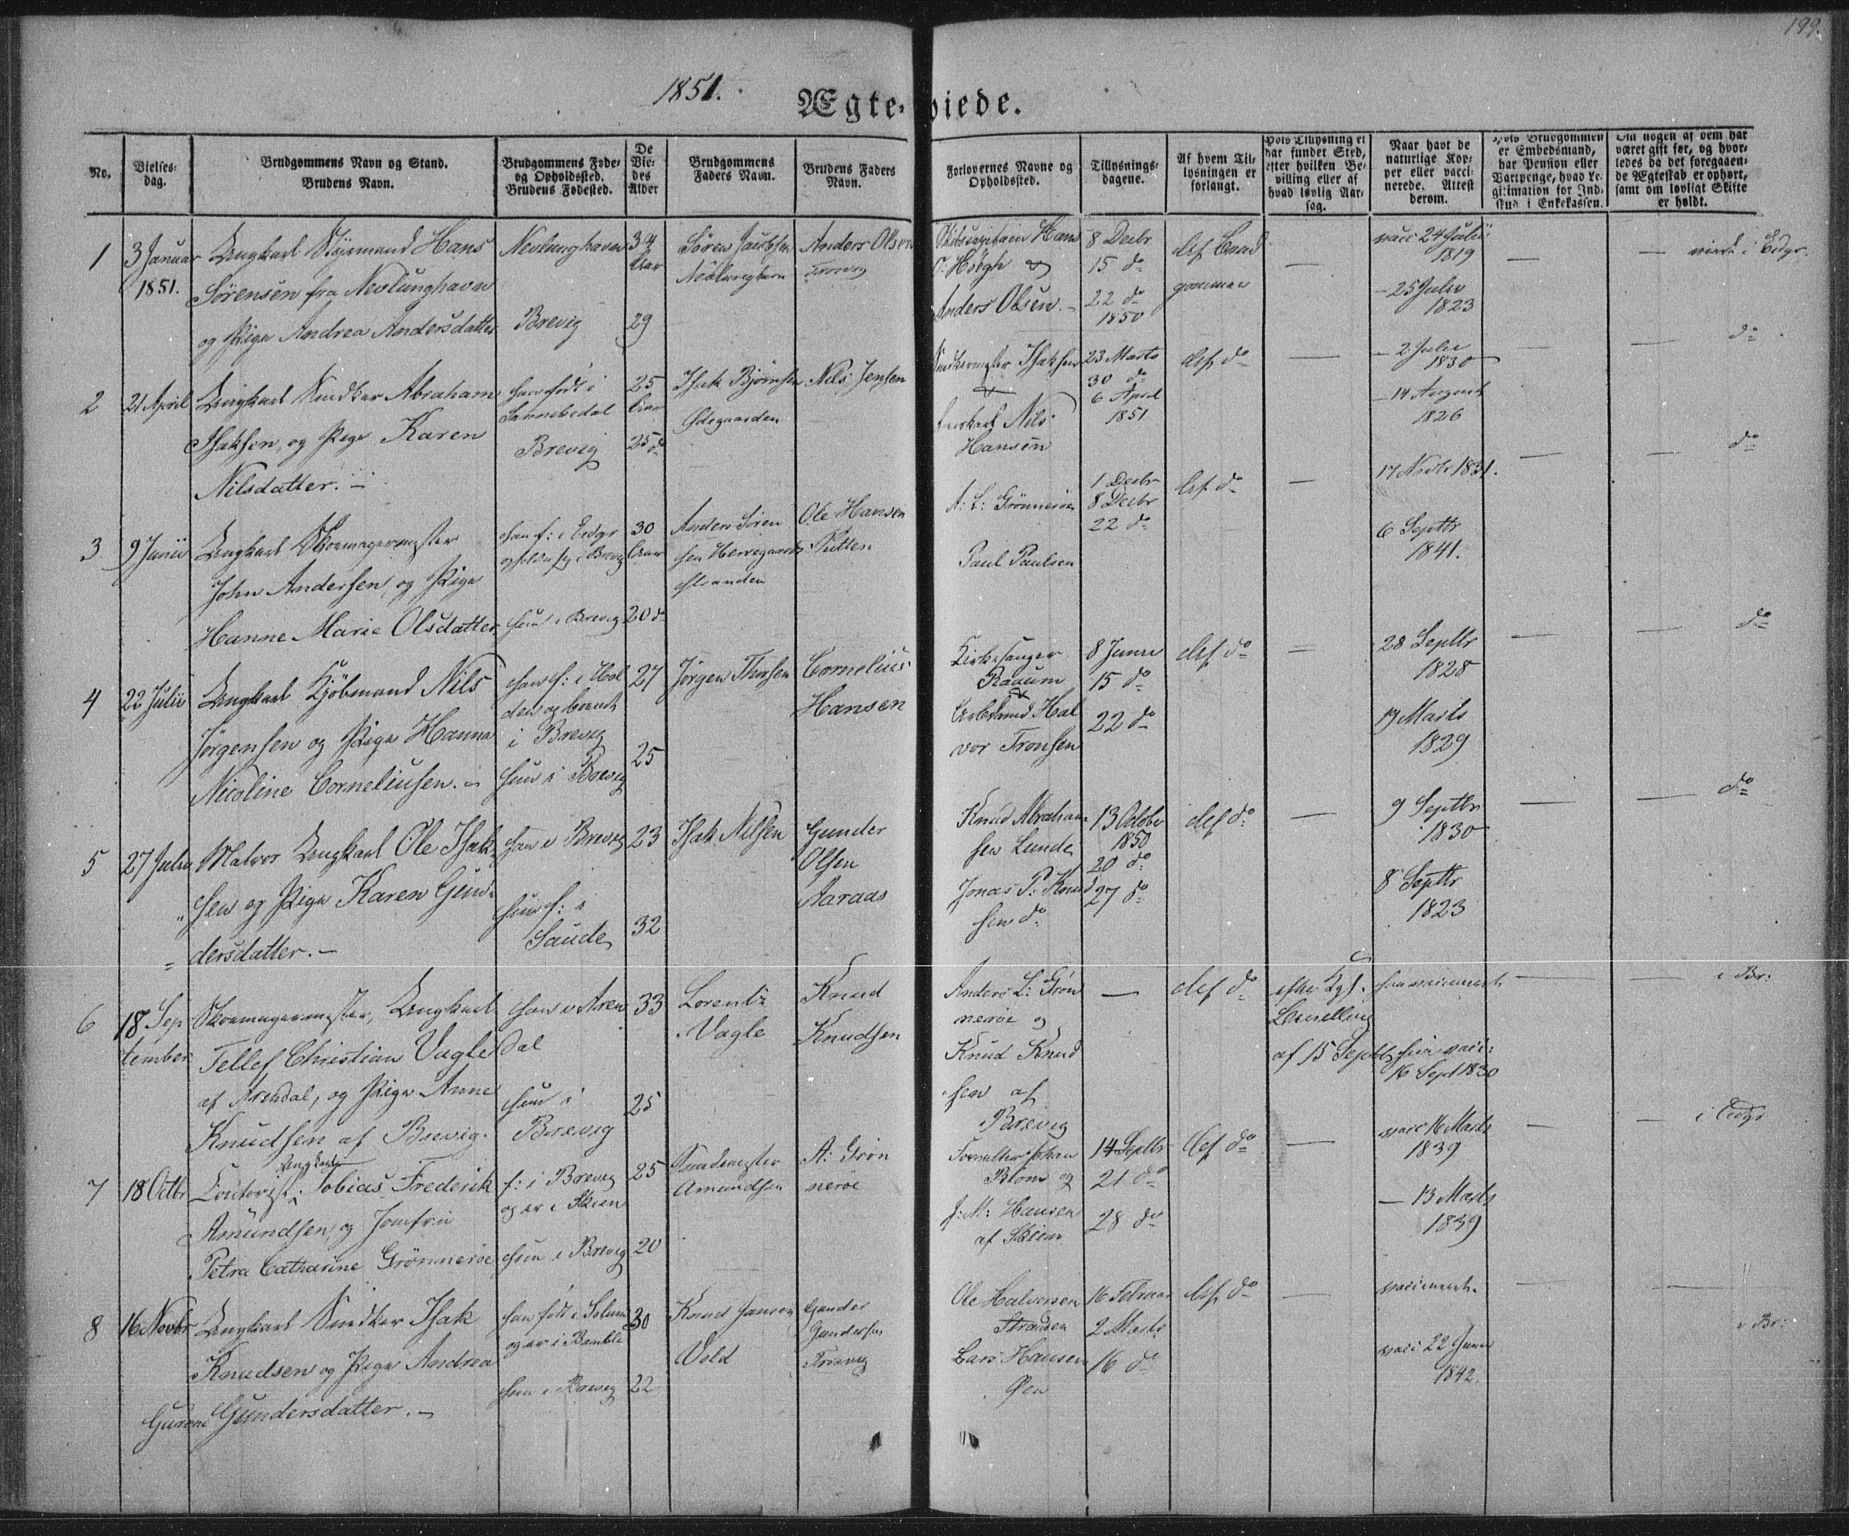 199.
1851.
Ægte-viede.
No.
Vielses-
dag.
Brudgommens Navn og Stand.
Brudens Navn.
Brudgommens Føde-
og Opholdssted.
Brudens Fødested.
De
Vie-
des
Alder
Brudgommens
Faders Navn.
Brudens Faders
Navn.
Forlovernes Navne og
Opholdssted.
Tillysnings-
dagene.
Af hvem Til-
lysningen er
forlangt.
Hvis Tillysning ei
har fundet Sted,
efter hvilken Be-
villing eller af
hvad lovlig Aar-
sag.
Naar havt de
naturlige Kop-
per eller vacci-
nerede. Attest
derom.
Hvis Brudgommen
er Embedsmand,
har Pension eller
Vartpenge, hvad Le-
gitimation for Ind-
skud i Enkekassen.
Om nogen af dem har
været gift før, og hvor-
ledes da det foregaaen-
de Ægteskab er ophørt,
samt om lovligt Skifte
er holdt.
1
3 Januar
1851.
Ungkarl Styrmand Hans
Sørensen fra Nevlunghavn
og Pige Andrea Andersdatter
Nevlunghavn
Brevig
34
Aar
29
Søren Jacobsen
Nevlunghavn
Anders Olsen
Skibscapitain Hans
C. Höegh og
Anders Olsen. -
8 Decbr
15 do
22 do
1850
def Brud
gommen
—
vacc 24 Julii
1819
- 25 Julii
1823
—
—
viede i Eidgr.
2
21 April
Ungkarl Snedker Abraham
Isaksen, og Pige Karen
Nilsdatter. -
han født i
Sannikedal
Brevig
25
Aar
25 do
Isak Bjørnsen
Ødegaarden
Nils Jensen
Snedkermester Isaksen
&
Nils
Hansen
23 Marts
30 do
6 April
1851
def do
—
- 2 Julii
1830
- 14 August
1826
—
—
do
3
9 Junii
Ungkarl Skoemagermester
John Andersen, og Pige
Hanne Marie Olsdatter
han f: i Eidgr
opholder sig i Brevig
hun i Brevig
30
Aar
20 do
Anders Søren
sen
stranden
Ole Hansen
Putten
A: L: Grønneröe
Paul Paulsen
1 Decbr
8 Decbr
22 do
def do
—
17 Novbr 1831.
6 Septbr
1841.
—
—
do
4
22 Julii
Ungkarl Kjöbmand Nils
Jørgensen og Pige Hanna
Nicoline Corneliusen. -
han f: i Hol
den og boende
i Brevig
hun i Brevig
27
25
Jørgen Thorsen
Cornelius
Hansen
Kirkesanger
Raaum
&
Arbmand Hal
vor Tronsen
8 Junii
15 do
22 do
def do
—
28 Septbr
1828
19 Marts
1829
—
—
do
5
27 Julii
Matros Ungkarl Ole Isak-
sen og Pige Karen Gun-
dersdatter. -
han i Brevig
hun f: i
Saude
23
32
Isak Nilsen
Gunder
Olsen
Aaraas
Knud Abraham
sen Lunde
Jonas P: Knud
sen do
13 Octobr
1850
20 do
27 do
def do
—
9 Septbr
1830
8 Septbr
1823
—
—
do
6
18 Sep
tember
Skoemagermester, Ungkarl
Tellef Christian Vagle
af Arendal, og Pige Anne
Knudsen af Brevig.
han i Aren
dal
hun i
Brevig
33
25
Lorentz
Vagle
Knud
Knudsen
Anders L: Grön
neröe og
Knud Knud
sen af
Brevig
—
def do
efter Kgl.
Bevilling
af 15 Septbr
han vaccineret
hun vacc:
16 Sept 1830
—
—
i Br:
7
18 Octbr
Ungkarl
Contorist Tobias Frederik
Amundsen og Jomfru
Petra Catharine Grönneröe
f: i Brevig
og er i Skien
hun i Brevig
25
20
Smedmester
Amundsen
A: Grön
neröe
Johan
Blom og
J: M: Hansen
af Skien
14 Septbr
21 do
28 do
def do
—
vacc 16 Marts
1839
- 13 Marts
1839
—
—
i Eidgr
8
16 Novbr
Ungkarl Snedker Isak
Knudsen og Pige Andrea
Gurine Gundersdatter. -
han født i Solum
og er i Bamble
hun i Brevig
30
22
Knud Jansen
Vold
Gunder
Gundersen
Ole Halvorsen
Stranden
Lars Hansen
Øen
16 Februar
2 Marts
16 do
def do
vaccineret.
vacc 22 Junii
1842.
—
i Br: